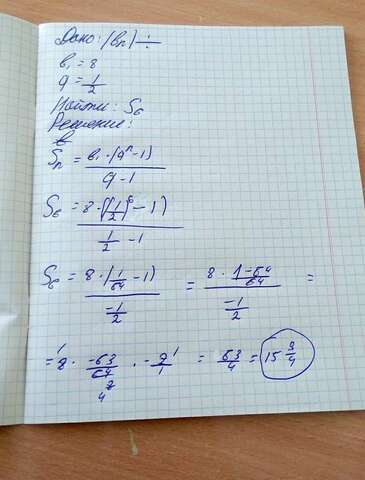 Дано: (bn) ÷
b₁ = 8
q = 1/2
Найти: S₆
Решение:
Sn = b₁ · (qⁿ - 1) / q - 1
S₆ = 8 · ((1/2)⁶ - 1) / 1/2 - 1
S₆ = 8 · (1/64 - 1) / -1/2 = 8 · 1-64/64 / -1/2 =
= 8 · -63/64 · -2/1 = 63/4 = 15 3/4